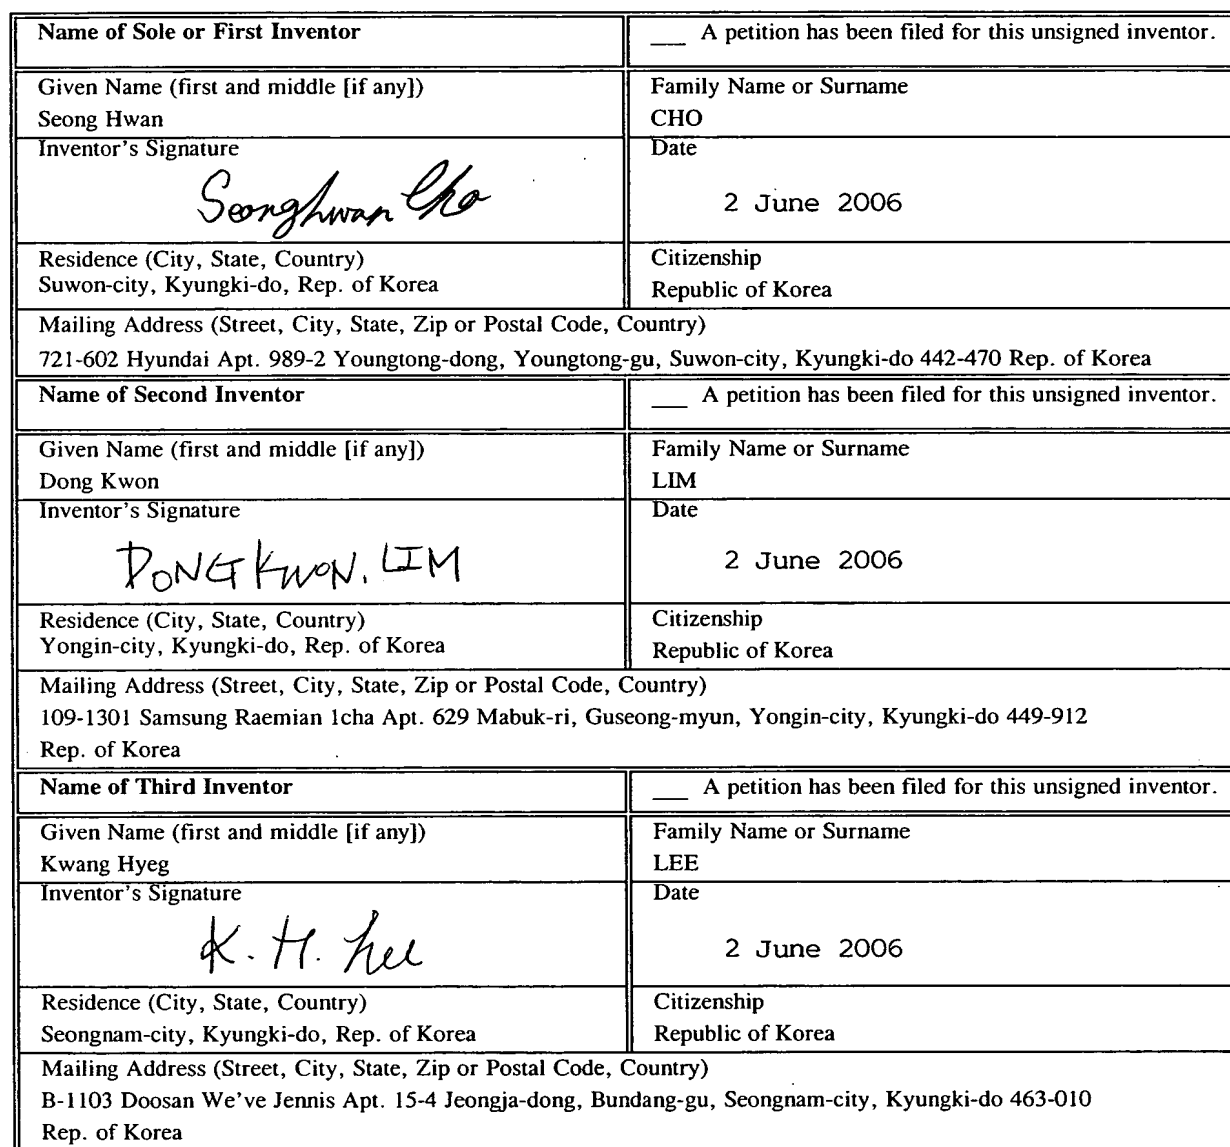 Name of Sole or First Inventor
___ A petition has been filed for this unsigned inventor.
Given Name (first and middle [if any])
Family Name or Surname
Seong Hwan
CHO
Inventor's Signature
Date
Seonghwan Cho
2 June 2006
Residence (City, State, Country)
Citizenship
Suwon-city, Kyungki-do, Rep. of Korea
Republic of Korea
Mailing Address (Street, City, State, Zip or Postal Code, Country)
721-602 Hyundai Apt. 989-2 Youngtong-dong, Youngtong-gu, Suwon-city, Kyungki-do 442-470 Rep. of Korea
Name of Second Inventor
___ A petition has been filed for this unsigned inventor.
Given Name (first and middle [if any])
Family Name or Surname
Dong Kwon
LIM
Inventor's Signature
Date
DONG KWON, LIM
2 June 2006
Residence (City, State, Country)
Citizenship
Yongin-city, Kyungki-do, Rep. of Korea
Republic of Korea
Mailing Address (Street, City, State, Zip or Postal Code, Country)
109-1301 Samsung Raemian 1cha Apt. 629 Mabuk-ri, Guseong-myun, Yongin-city, Kyungki-do 449-912
Rep. of Korea
Name of Third Inventor
___ A petition has been filed for this unsigned inventor.
Given Name (first and middle [if any])
Family Name or Surname
Kwang Hyeg
LEE
Inventor's Signature
Date
K. H. Lee
2 June 2006
Residence (City, State, Country)
Citizenship
Seongnam-city, Kyungki-do, Rep. of Korea
Republic of Korea
Mailing Address (Street, City, State, Zip or Postal Code, Country)
B-1103 Doosan We've Jennis Apt. 15-4 Jeongja-dong, Bundang-gu, Seongnam-city, Kyungki-do 463-010
Rep. of Korea